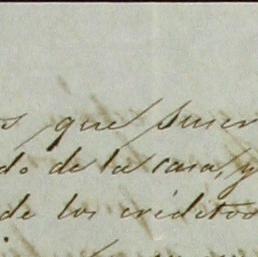 s que suscr
do de la casa, y
de los créditos